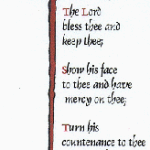 The Lord
bless thee and
keep thee;
Show his face
to thee and have
mercy on thee;
Turn his
countenance to thee